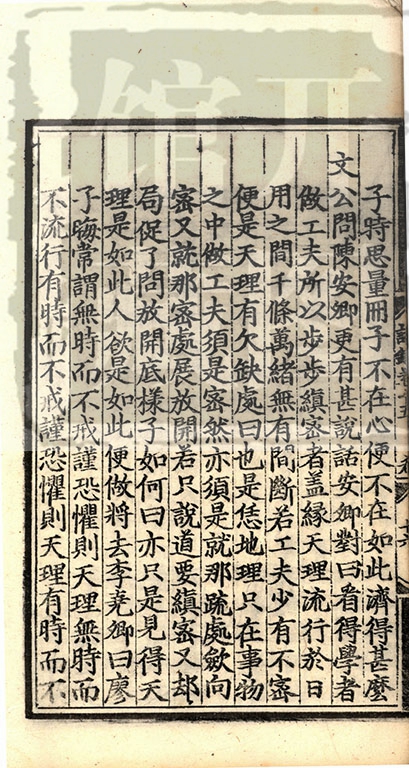 子時思量冊子不在心便不在如此濟得甚麼
文公問陳安卿更有甚說話安卿對曰看得學者
做工夫所以步步縝密者蓋緣天理流行於日
用之間千條萬緒無有間斷若工夫少有不密
便是天理有欠缺處曰也是恁地理只在事物
之中做工夫須是密然亦須是就那疏處斂向
密又就那密處展放開若只說道要縝密又却
局促了問放開底樣子如何曰亦只是見得天
理是如此人欲是如此便做將去李堯卿曰廖
子晦常謂無時而不戒謹恐懼則天理無時而
不流行有時而不戒謹恐懼則天理有時而不